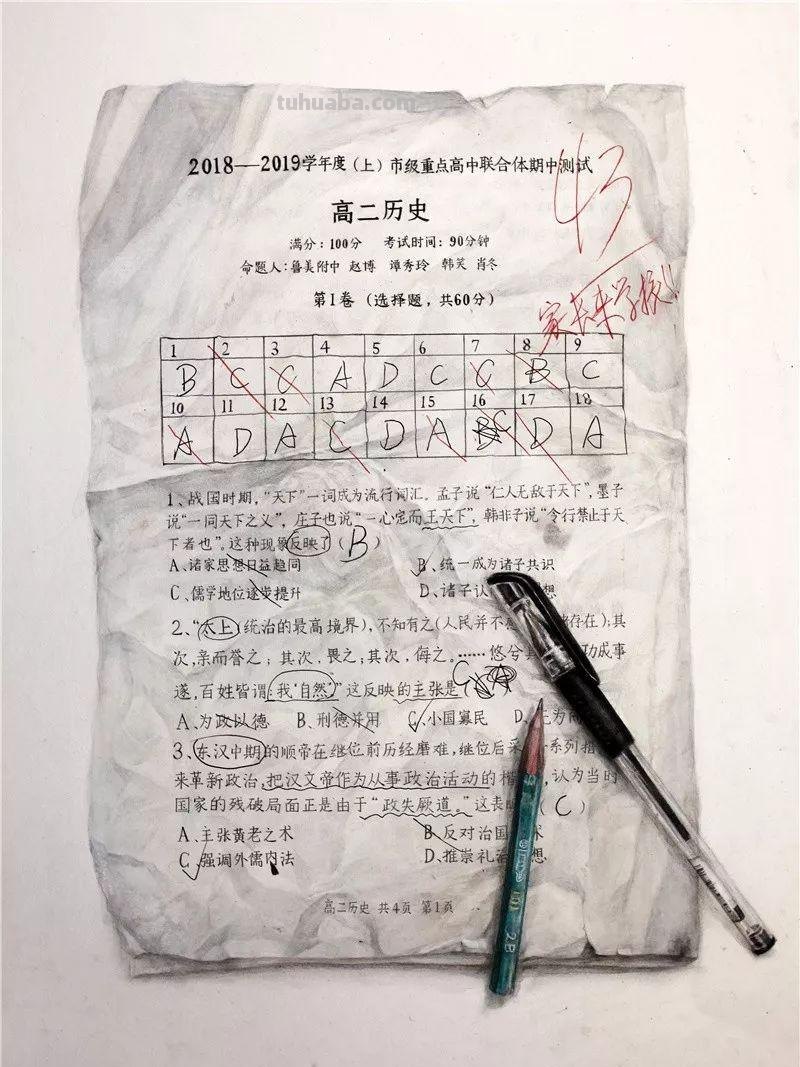 tuhuaba.com
2018—2019学年度（上）市级重点高中联合体期中测试
43
高二历史
满分：100分 考试时间：90分钟
命题人：鲁美附中 赵博 谭秀玲 韩笑 肖冬
家长来学校!!
第Ⅰ卷（选择题，共60分）
1 2 3 4 5 6 7 8 9
B C C A D C C B C
10 11 12 13 14 15 16 17 18
A D A C D A C D A
1、战国时期，“天下”一词成为流行词汇。孟子说“仁人无敌于天下”，墨子
说“一同天下之义”，庄子也说“一心定而王天下”，韩非子说“令行禁止于天
下者也”。这种现象反映了（B）
A、诸家思想日益趋同 B、统一成为诸子共识
C、儒学地位逐步提升 D、诸子认 想
2、“太上（统治的最高境界），不知有之（人民并不 存在）；其
次，亲而誉之；其次，畏之；其次，侮之。……悠兮 功成事
遂，百姓皆谓：我‘自然’”这反映的主张是 C
A、为政以德 B、刑德并用 C、小国寡民 D、
3、东汉中期的顺帝在继位前历经磨难，继位后采 系列措
来革新政治，把汉文帝作为从事政治活动的 ，认为当时
国家的残破局面正是由于“政失厥道。”这表 （C）
A、主张黄老之术 B、反对治国 术
C、强调外儒内法 D、推崇礼治 想
高二历史 共4页 第1页
101 2B